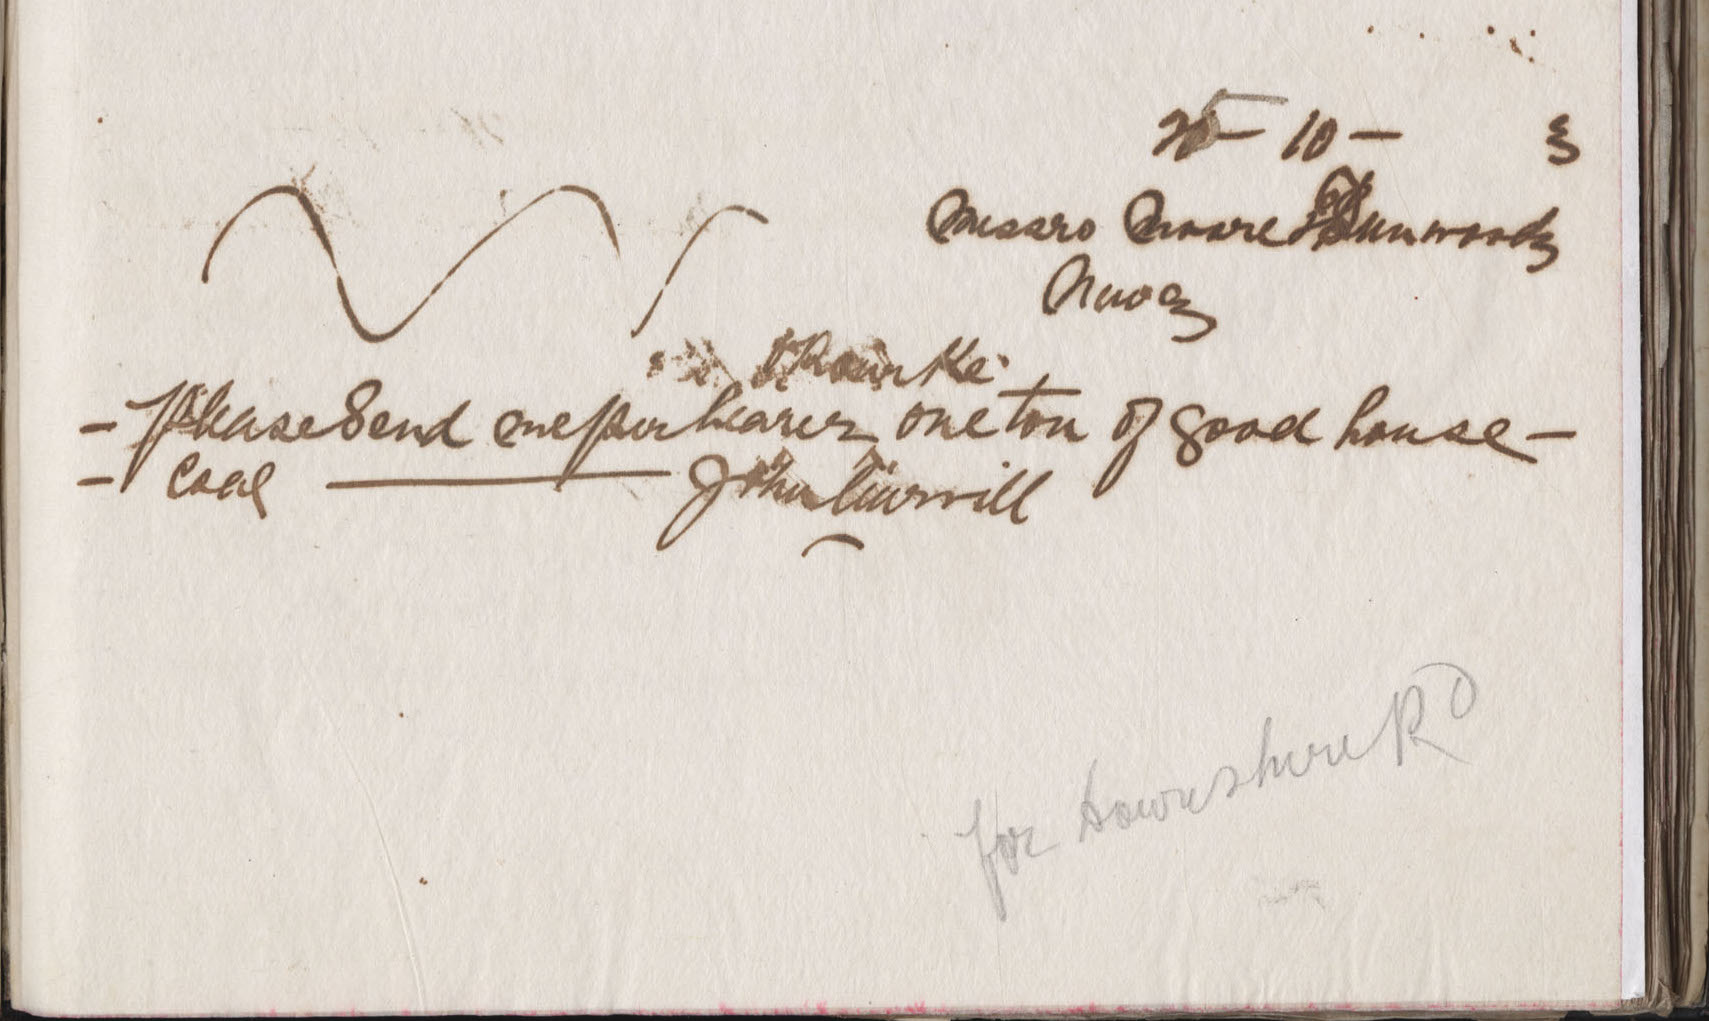 25 - 10 -
Messrs Moore & Dunwoody
Newry
O'Rourke
- Please Send me per bearer one ton of good house -
- Coal John
for Downshire Rd